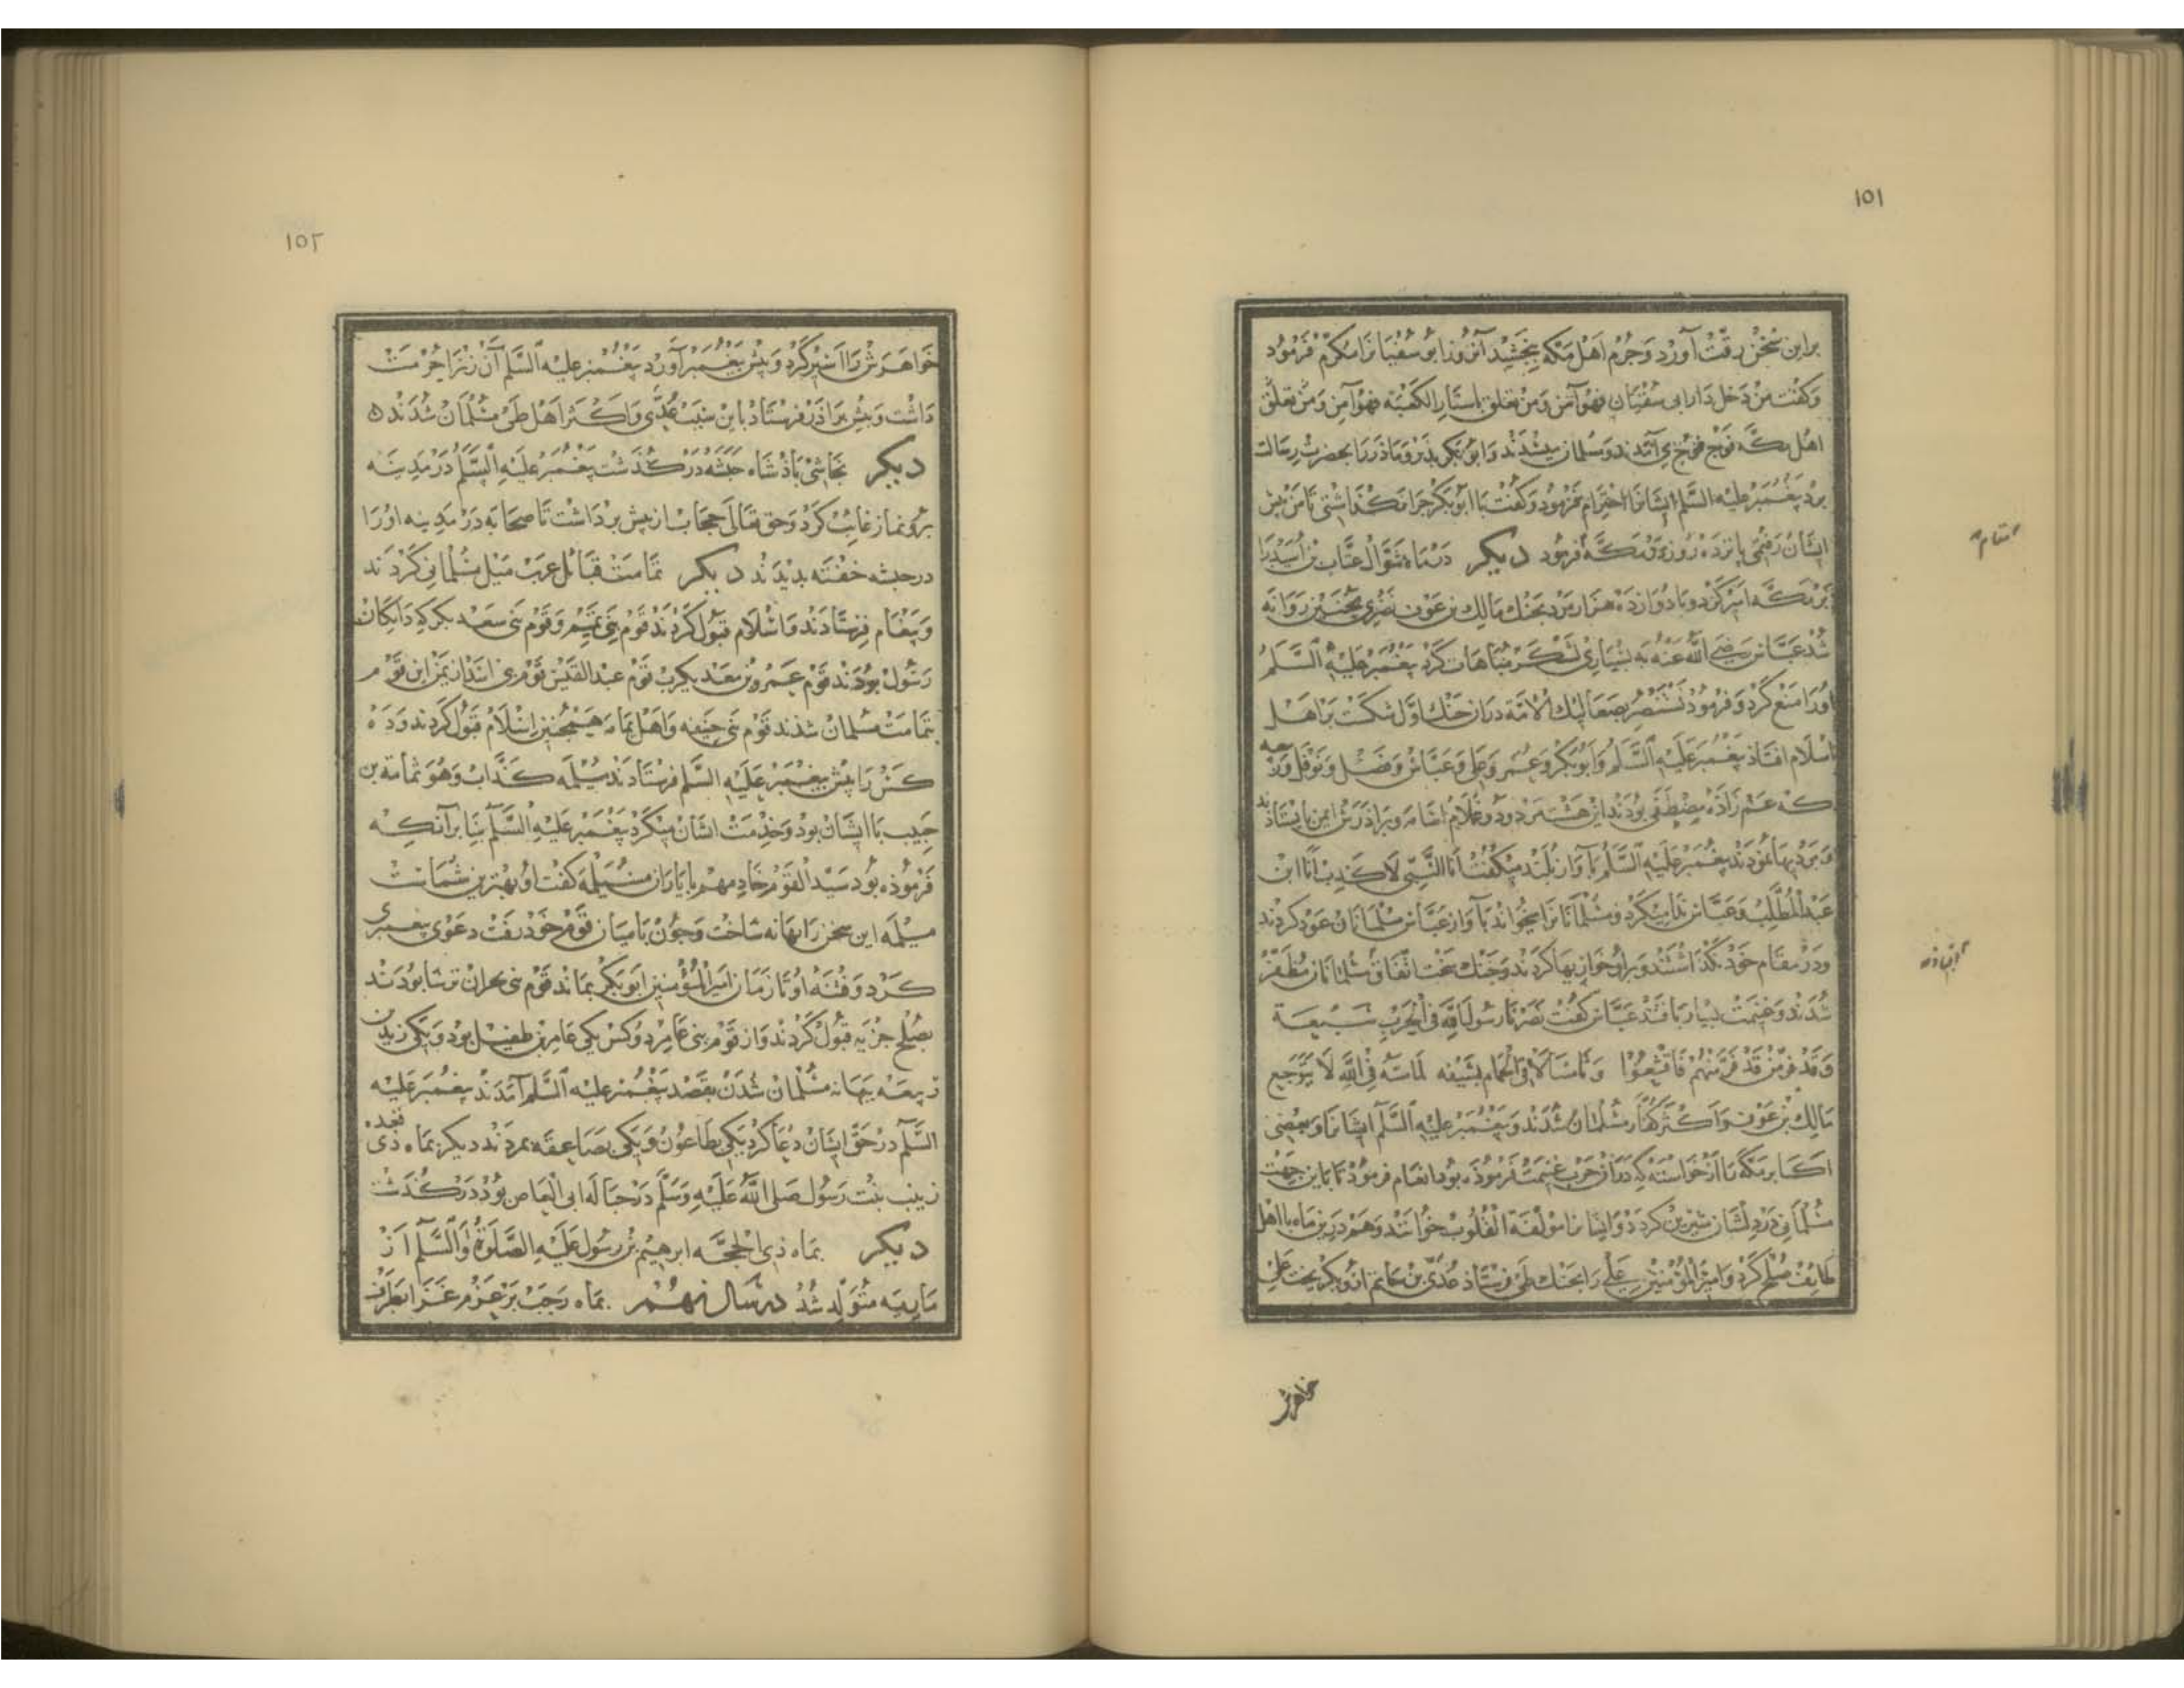 ١٥١
براین سخن رقت آورد و جرم اهل مکه ببخشید آنروز ابو سفیانرا مکرم فرمود
وکفت من دخل دار ابی سفیان فهو آمن ومن تعلق باستار الکعبه فهو آمن ومن تعلق
اهل مکه فوج فوج می آمدند ومسلمان میشدند وابوبکر بدر وماذر را بحضرت رسالت
برد پیغمبر علیه السلم ایشانرا احترام فرمود وکفت یا ابوبکر چرا نکذاشتی تا من پیش
ایشان رفتمی پانزده روز در مکه فرمود دیکر در ماه شوال عتاب بن اسید را
بر مکه امیر کرد وبا دوازده هزار مرد بجنك مالك بن عوف نضری بحنین روانه
شد عباس رضی الله عنه به بسیاری لشکر مباهات کرد پیغمبر علیه السلم
اورا منع کرد وفرمود نستنصر بصعالیك الامة دران جنك اول شکست بر اهل
اسلام افتاد پیغمبر علیه السلم وابوبکر وعمر وعلی وعباس وفضل ونوفل
که عم زاده مصطفی بودند این هشت مرد ودو غلام اسامه وبرادرش ایمن بایستاذند
پیغمبر علیه السلم بآواز بلند میکفت انا النبی لا کذب انا ابن
عبد المطلب وعباس ندا میکرد ومسلمانانرا میخواند بآواز عباس مسلمانان عود کردند
ودر مقام خود بکذاشتند وبراو خوازیها کردند وجنك سخت اتفاق مسلمانان مظفر
شدند وغنیمت بسیار یافتند عباس کفت نصرنا رسول الله فی الحرب سبعة
وقد فر من قد فر منهم فاقشعوا وثامننا لاقی الحمام بسیفه لما مسه فی الله لا یتوجع
مالك بن عوف واکثر کفار مسلمان شدند وپیغمبر علیه السلم ایشانرا وبعضی
اکابر مکه را از خواسته که دران حرب غنیمت فرموذه بود انعام فرمود تا باین جهت
مسلمانی در دلشان شیرین کردد وایشانرا مؤلفة القلوب خواندند وهم درین ماه با اهل
طایف صلح کرد وامیر المؤمنین علی را بجنك طی فرستاذ عدی بن حاتم ازو بکریخت علی
خواهرش
١٥٢
خواهرش را اسیر کرد وپیش پیغمبر آورد پیغمبر علیه السلم آن زنرا حرمت
داشت وپیش براذر فرستاد باین سبب عدی واکثر اهل طی مسلمان شدند
دیکر نجاشی پاذشاه حبشه درکذشت پیغمبر علیه السلم در مدینه
برو نماز غایب کرد وحق تعالی حجاب از پیش برداشت تا صحابه در مدینه اورا
در حبشه خفته بدیدند دیکر تمامت قبائل عرب میل مسلمانی کردند
وپیغام فرستادند واسلام قبول کردند قوم بنی تمیم وقوم بنی سعد بکر که دایکان
رسول بودند قوم عمرو بن معدیکرب قوم عبد القیس قومی اسد از یمن این قوم
تمامت مسلمان شدند قوم بنی حنیفه واهل یمامه همچنین اسلام قبول کردند وده
کس را پیش پیغمبر علیه السلم فرستادند مسیلمه کذاب وهو ثمامة بن
حبیب با ایشان بود وخدمت ایشان میکرد پیغمبر علیه السلم بنا برآنکه
فرموذه بود سید القوم خادمهم با یاران مسیلمه کفت او بهترین شماست
مسیلمه این سخن را بهانه ساخت وچون بامیان قوم خود رفت دعوی پیغمبری
کرد وفتنه او تا زمان امیر المؤمنین ابوبکر بماند قوم بنی نجران ترسا بودند
بصلح جزیه قبول کردند واز قوم بنی عامر دو کس یکی عامر بن طفیل بود ویکی زید بن
ربیعه ببهانه مسلمان شدن بقصد پیغمبر علیه السلم آمدند پیغمبر علیه
السلم در حق ایشان دعا کرد یکی بطاعون ویکی بصاعقه بمردند دیکر بماه ذی قعده
زینب بنت رسول صلی الله علیه وسلم در حباله ابی العاص بود درکذشت
دیکر بماه ذی الحجه ابرهیم بن رسول علیه الصلوة والسلم از
ماریه متولد شد در سال نهم بماه رجب بر عزم غزا بطرف